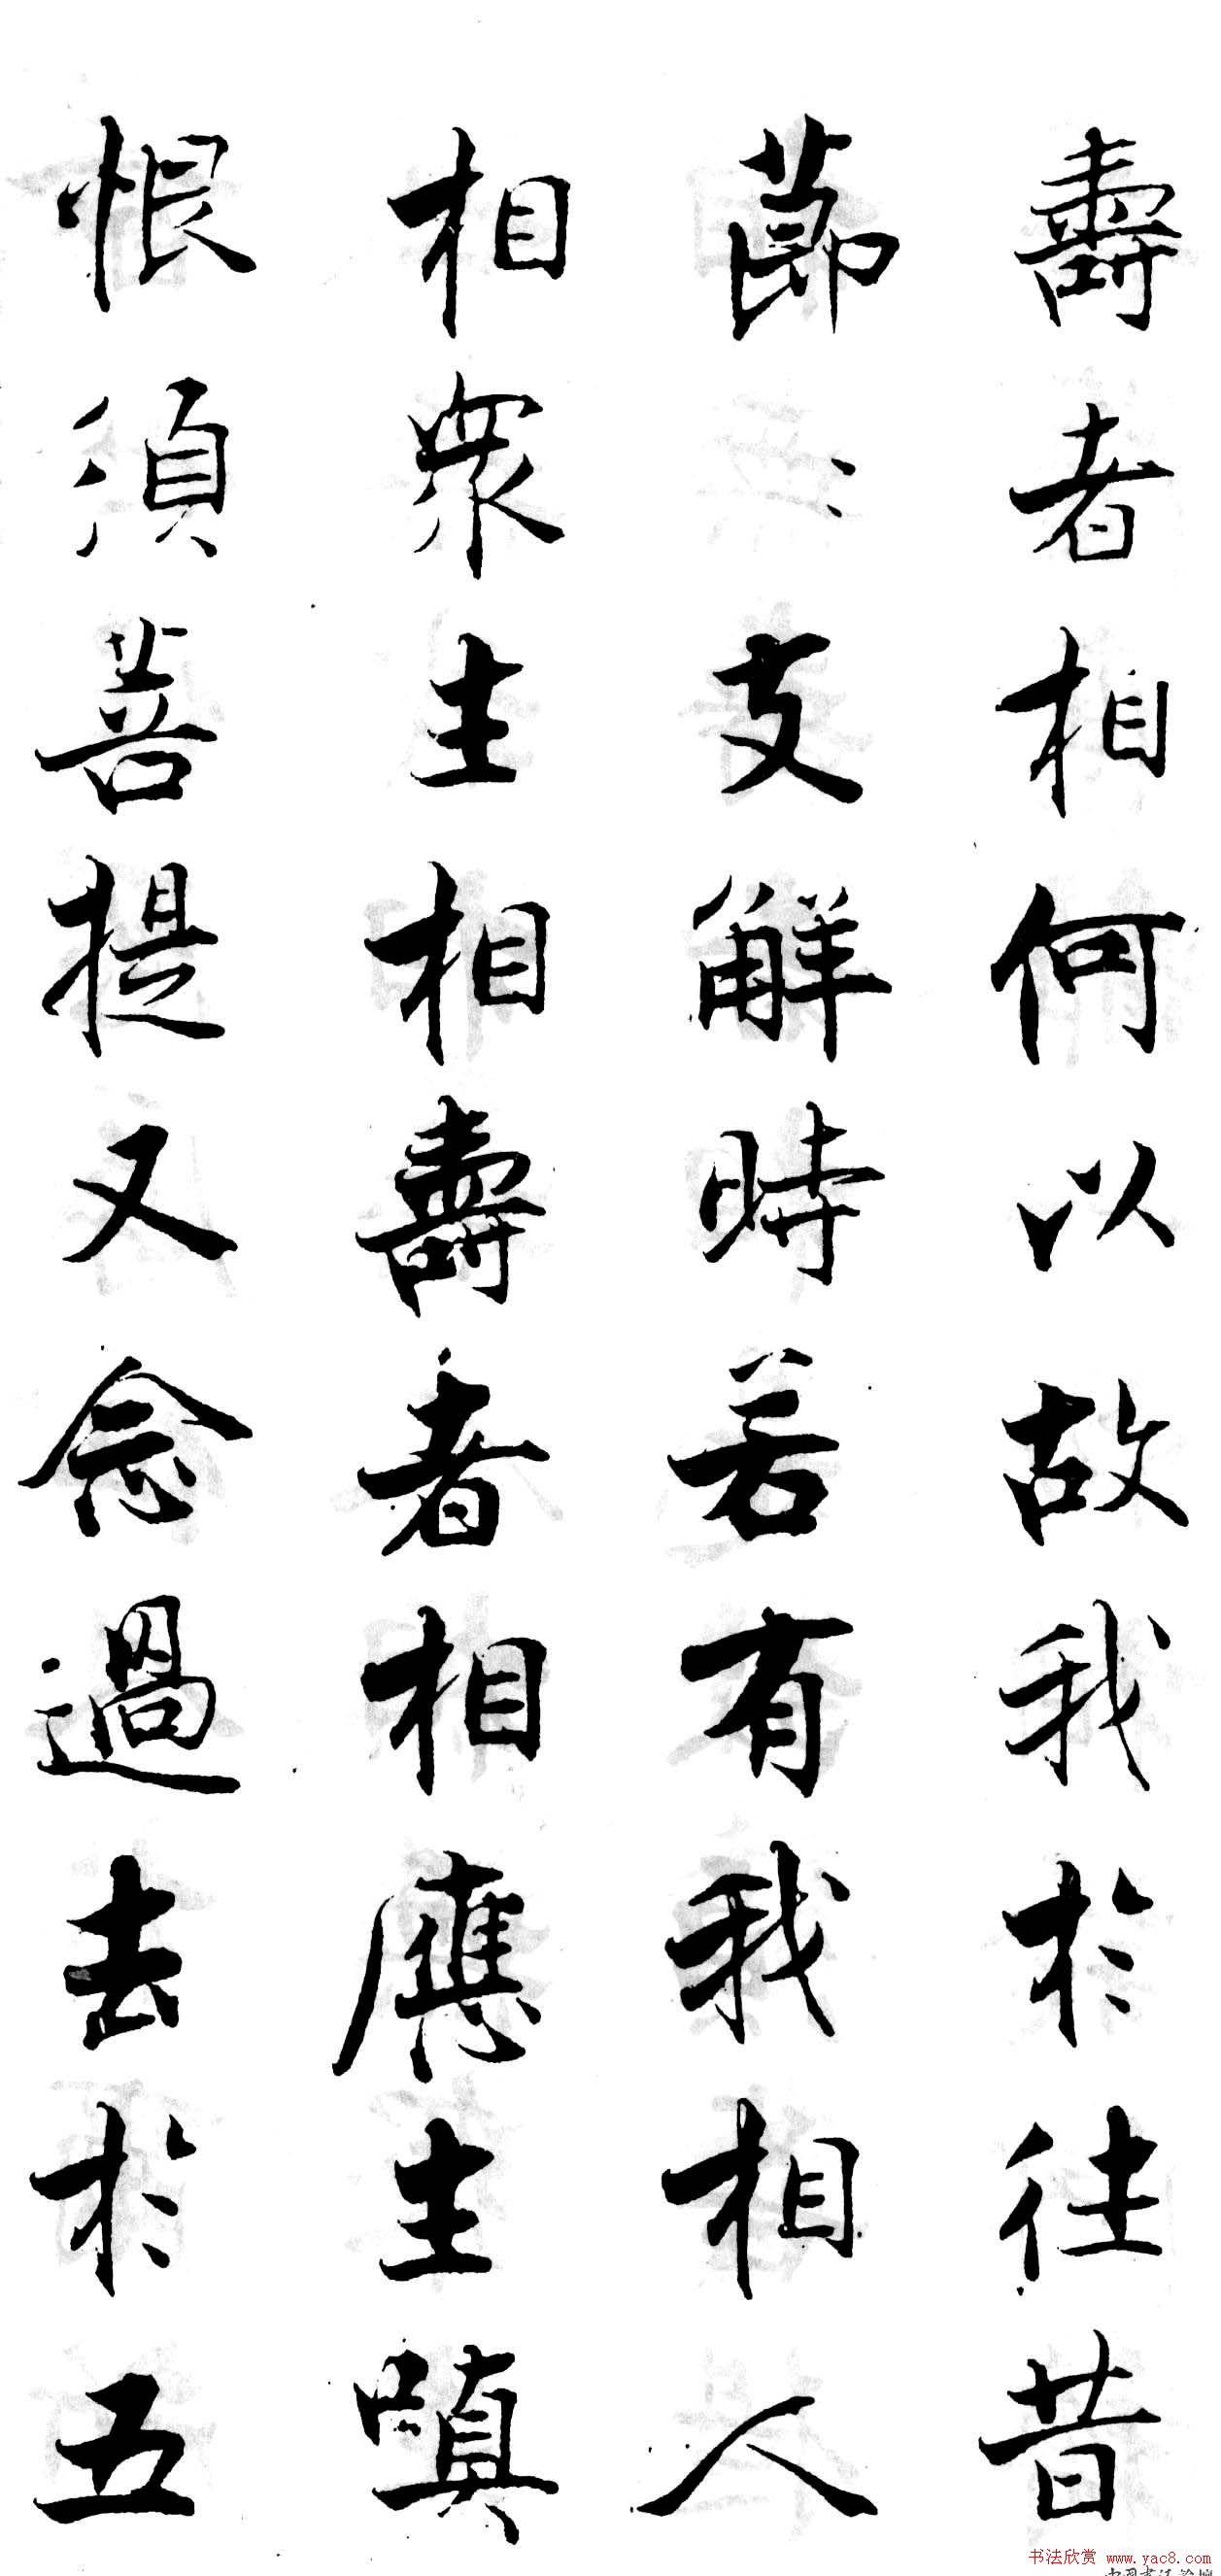 壽者相何以故我於往昔
節〻支解時若有我相人
相衆生相壽者相應生嗔
恨須菩提又念過去於五
书法欣赏 www.yac8.com